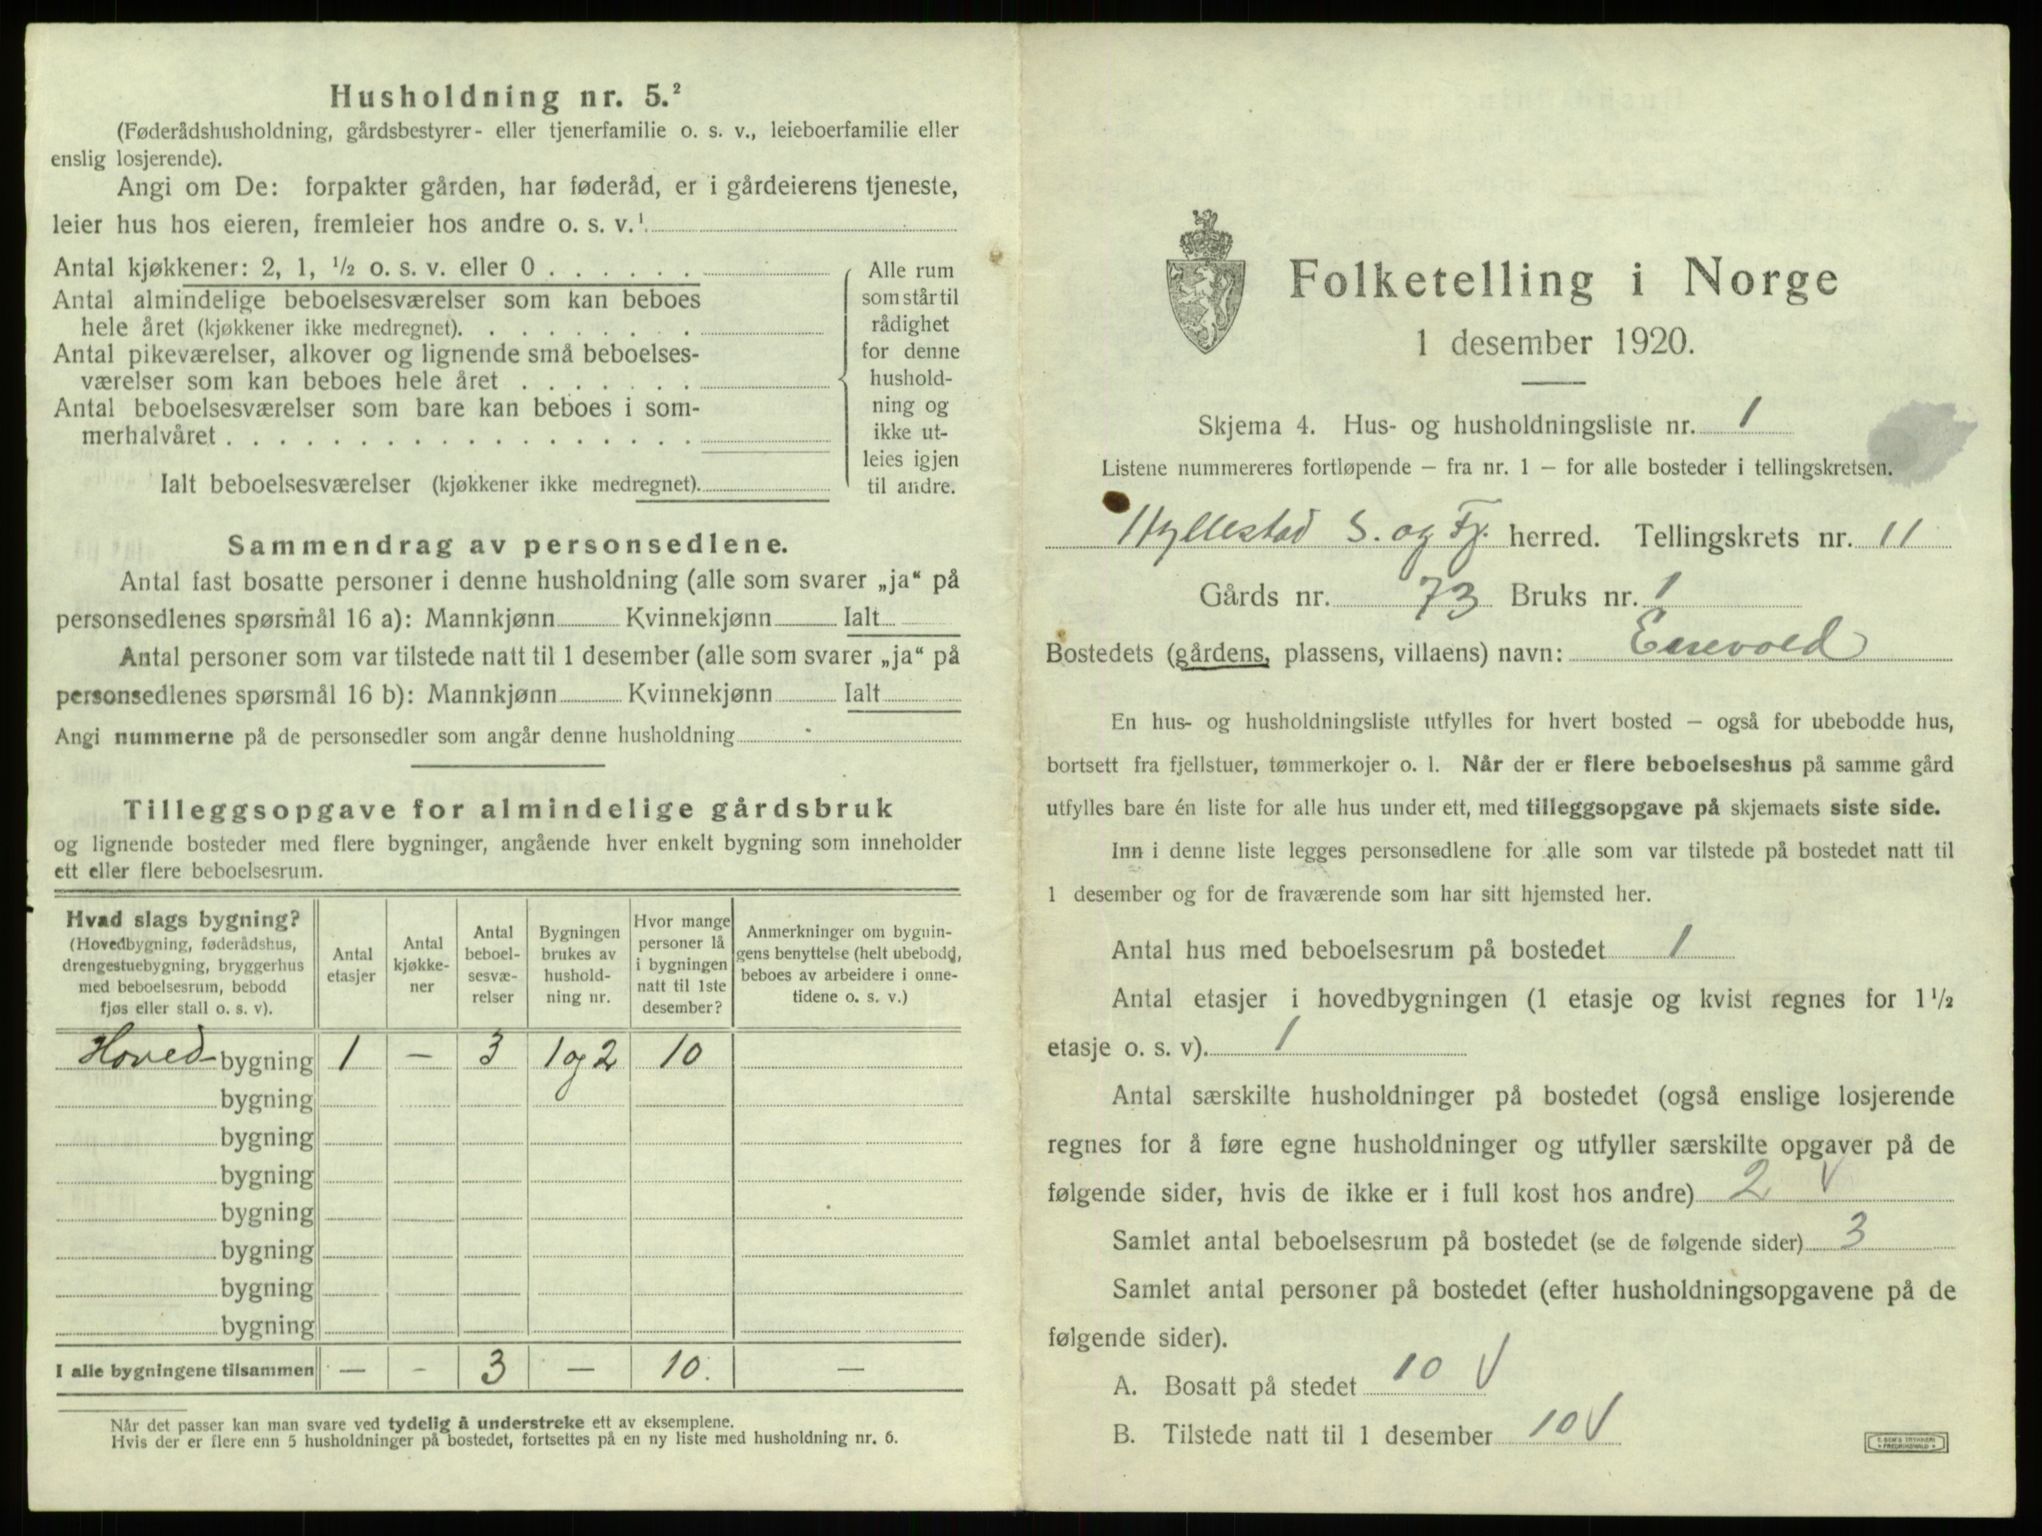 Husholdning nr. 5.²
(Føderådshusholdning, gårdsbestyrer- eller tjenerfamilie o. s. v., leieboerfamilie eller
enslig losjerende).
Angi om De: forpakter gården, har føderåd, er i gårdeierens tjeneste,
leier hus hos eieren, fremleier hos andre o. s. v.¹
Antal kjøkkener: 2, 1, ½ o. s. v. eller 0 . . . . . .
Antal almindelige beboelsesværelser som kan beboes
hele året (kjøkkener ikke medregnet). . . . . . . . .
Antal pikeværelser, alkover og lignende små beboelses-
værelser som kan beboes hele året . . . . . . .
Antal beboelsesværelser som bare kan beboes i som-
merhalvåret . . . . . . . . . . . . . . . . . .
Ialt beboelsesværelser (kjøkkener ikke medregnet).
Alle rum
som står til
rådighet
for denne
hushold-
ning og
ikke ut-
leies igjen
til andre.
Sammendrag av personsedlene.
Antal fast bosatte personer i denne husholdning (alle som svarer „ja“ på
personsedlenes spørsmål 16 a): Mannkjønn Kvinnekjønn Ialt
Antal personer som var tilstede natt til 1 desember (alle som svarer „ja“ på
personsedlenes spørsmål 16 b): Mannkjønn Kvinnekjønn Ialt
Angi nummerne på de personsedler som angår denne husholdning
Tilleggsopgave for almindelige gårdsbruk
og lignende bosteder med flere bygninger, angående hver enkelt bygning som inneholder
ett eller flere beboelsesrum.
Hvad slags bygning?
(Hovedbygning, føderådshus,
drengestuebygning, bryggerhus
med beboelsesrum, bebodd
fjøs eller stall o. s. v).
Antal
etasjer
Antal
kjøkke-
ner
Antal
beboel-
sesvæ-
relser
Bygningen
brukes av
hushold-
ning nr.
Hvor mange
personer lå
i bygningen
natt til 1ste
desember?
Anmerkninger om bygnin-
gens benyttelse (helt ubebodd,
beboes av arbeidere i onne-
tidene o. s. v.)
Hoved-bygning 1 — 3 1 og 2 10
bygning
bygning
bygning
bygning
bygning
bygning
bygning
I alle bygningene tilsammen — - 3 — 10. —
Når det passer kan man svare ved tydelig å understreke ett av eksemplene.
Hvis der er flere enn 5 husholdninger på bostedet, fortsettes på en ny liste med husholdning nr. 6.
Folketelling i Norge
1 desember 1920.
Skjema 4. Hus- og husholdningsliste nr. 1
Listene nummereres fortløpende — fra nr. 1 — for alle bosteder i tellingskretsen.
Hyllestad S. og Fj. herred. Tellingskrets nr. 11
Gårds nr. 73 Bruks nr. 1
Bostedets (gårdens, plassens, villaens) navn:
En hus- og husholdningsliste utfylles for hvert bosted — også for ubebodde hus,
bortsett fra fjellstuer, tømmerkojer o. l. Når der er flere beboelseshus på samme gård
utfylles bare én liste for alle hus under ett, med tilleggsopgave på skjemaets siste side.
Inn i denne liste legges personsedlene for alle som var tilstede på bostedet natt til
1 desember og for de fraværende som har sitt hjemsted her.
Antal hus med beboelsesrum på bostedet 1
Antal etasjer i hovedbygningen (1 etasje og kvist regnes for 1½
etasje o. s. v). 1
Antal særskilte husholdninger på bostedet (også enslige losjerende
regnes for å føre egne husholdninger og utfyller særskilte opgaver på de
følgende sider, hvis de ikke er i full kost hos andre) 2
Samlet antal beboelsesrum på bostedet (se de følgende sider) 3
Samlet antal personer på bostedet (efter husholdningsopgavene på de
følgende sider).
A. Bosatt på stedet 10
B. Tilstede natt til 1 desember 10